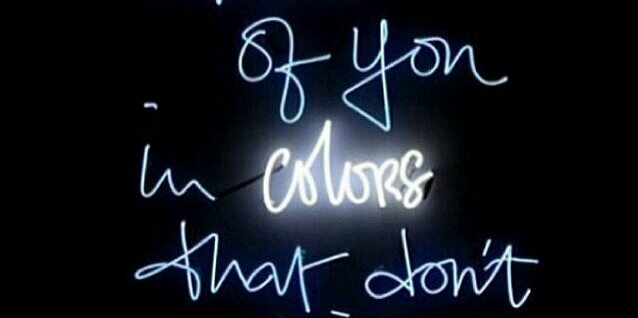 of you
in colors
that don't